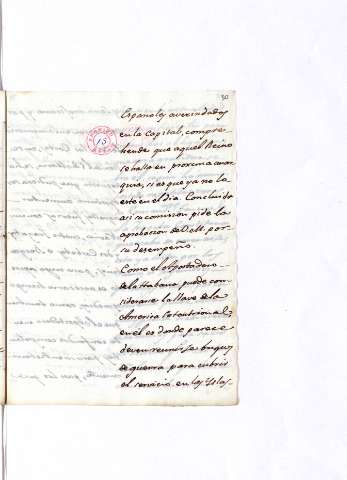 30
15
Españoles avecindados
en la Capital, compre-
hende que aquel Recino
se halla en proxima anar-
quia, si es que ya no la
esté en el dia. Concluida
asi su comision pide la
aprobacion de V.M. por
su desempeño.
Como el Apostadero
de la Habana puede con-
siderarse la llave de la
America Setentrional, y
en el es donde parece
deven reunirse buques
de guerra para cubrir
el servicio en las Islas